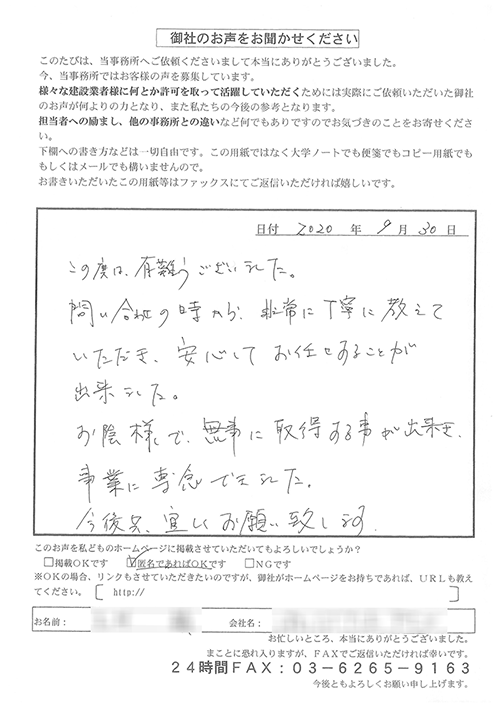 御社のお声をお聞かせください
このたびは、当事務所へご依頼くださいまして本当にありがとうございました。
今、当事務所ではお客様の声を募集しています。
様々な建設業者様に何とか許可を取って活躍していただくためには実際にご依頼いただいた御社
のお声が何よりの力となり、また私たちの今後の参考となります。
担当者への励まし、他の事務所との違いなど何でもありですのでお気づきのことをお寄せくださ
い。
下欄への書き方などは一切自由です。この用紙ではなく大学ノートでも便箋でもコピー用紙でも
もしくはメールでも構いませんので。
お書きいただいたこの用紙等はファックスにてご返信いただければ嬉しいです。
日付 2020 年 9 月 30 日
この度は、有難うございました。
問い合わせの時から、非常に丁寧に教えて
いただき、安心してお任せすることが
出来ました。
お陰様で、無事に取得する事が出来き、
事業に専念できました。
今後共、宜しくお願い致します。
このお声を私どものホームページに掲載させていただいてもよろしいでしょうか?
□掲載OKです ☑匿名であればOKです □NGです
※OKの場合、リンクもさせていただきたいのですが、御社がホームページをお持ちであれば、URLも教え
てください。[ http:// ]
お名前: 会社名:
お忙しいところ、本当にありがとうございました。
まことに恐れ入りますが、FAXでご返信いただければ幸いです。
24時間FAX:03-6265-9163
今後ともよろしくお願い申し上げます。